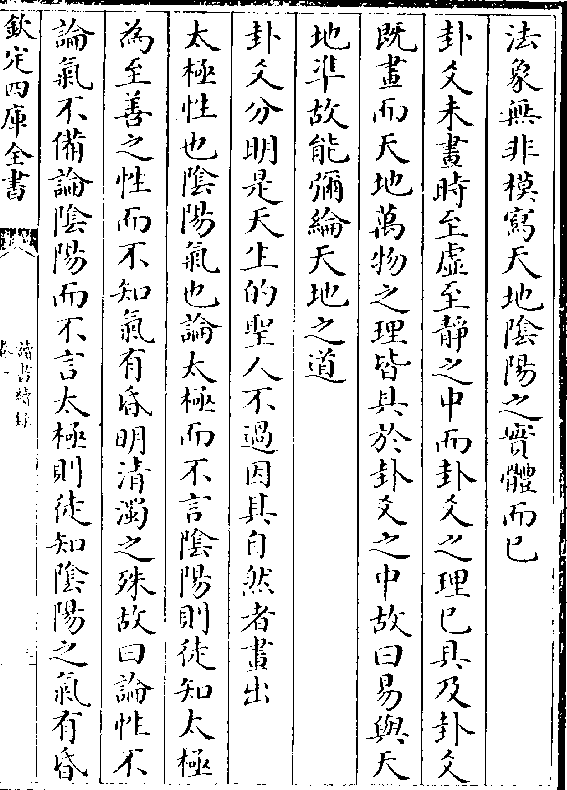 法象無非模寫天地陰陽之實體而已
卦爻未畫時至虛至靜之中而卦爻之理已具及卦爻
既畫而天地萬物之理皆具於卦爻之中故曰易與天
地凖故能彌綸天地之道
卦爻分明是天生的聖人不過因其自然者畫出
太極性也陰陽氣也論太極而不言陰陽則徒知太極
為至善之性而不知氣有昏明清濁之殊故曰論性不
論氣不備論陰陽而不言太極則徒知陰陽之氣有昏
欽定四庫全書
讀書續錄